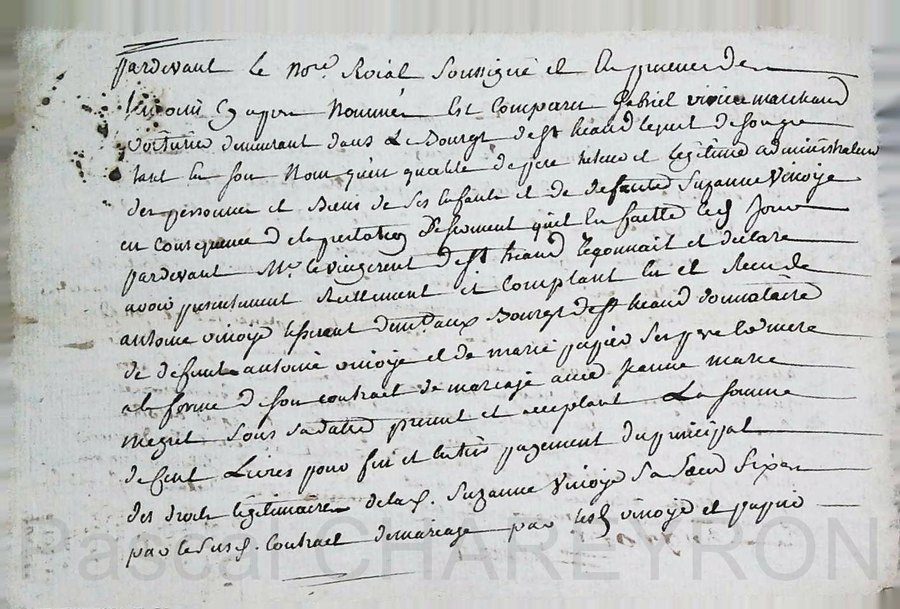 pardevant le no.re Roial soussigné et En presence des
temoins cy apres nommés Est Comparu gabriel vivier marchand
voiturier demeurant dans Le Bourg de st heand lequel de son gre
tant En son Nom qu'en qualité de pere tuteur et legitime administrateur
des personnes et Biens de ses Enfants et de defunte Suzanne Vinoye
en Consequence d et prestation de serment qu'il En a faitte led jour
pardevant Mr le vingerent de st heand Reconnait et declare
avoir presentement Reellement et Comptant Eu et Receu de
antoine vinoye demt aux Bourg de st heand donnataire
de defunt antoine vinoye et de marie papier ses pere et mere
a la forme d son contract de mariage avec jeanne marie
megret sous sa datte present et acceptant La somme
de Cent Livres pour fin et Entier payement du principal
des droits legitimaires de lad. Suzanne Vinoye sa soeur fixés
par le susd. Contract de mariage par lesd vinoye et papier
Pascal CHAREYRON